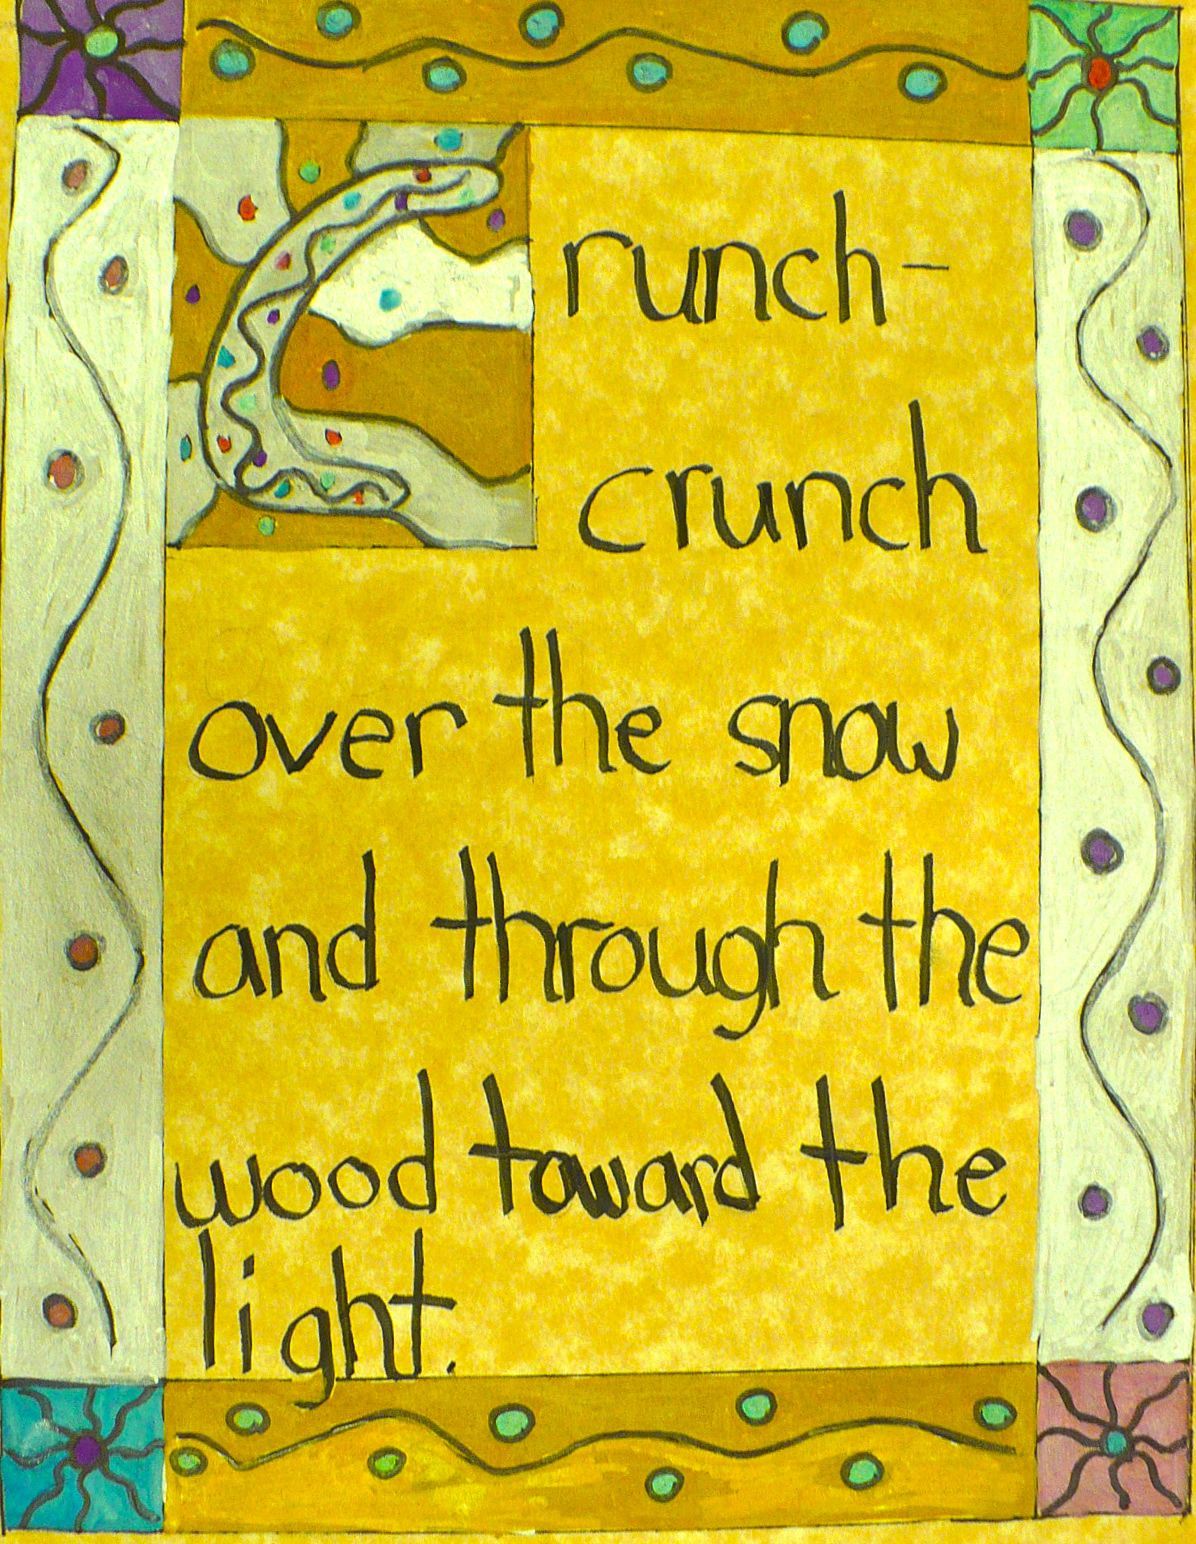 Crunch-
crunch
over the snow
and through the
wood toward the
light.